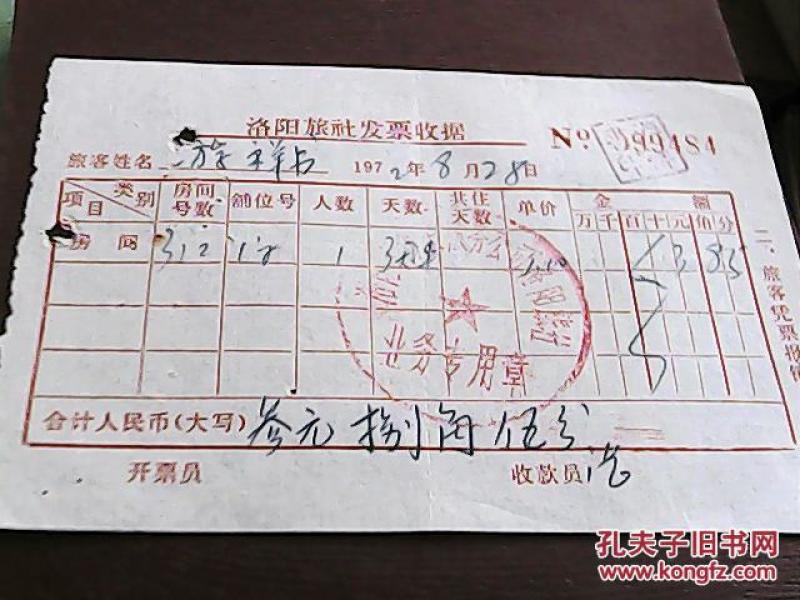 洛阳旅社发票收据
No 099484
旅客姓名 1972年8月28日
类别 项目 房间号数 铺位号 人数 天数 共住天数 单价 金额
万 千 百 十 元 角 分
房间 312 1 3 85
业务专用章
合计人民币(大写) 叁元捌角伍分
开票员 收款员
二、旅客凭票报销
孔夫子旧书网
www.kongfz.com